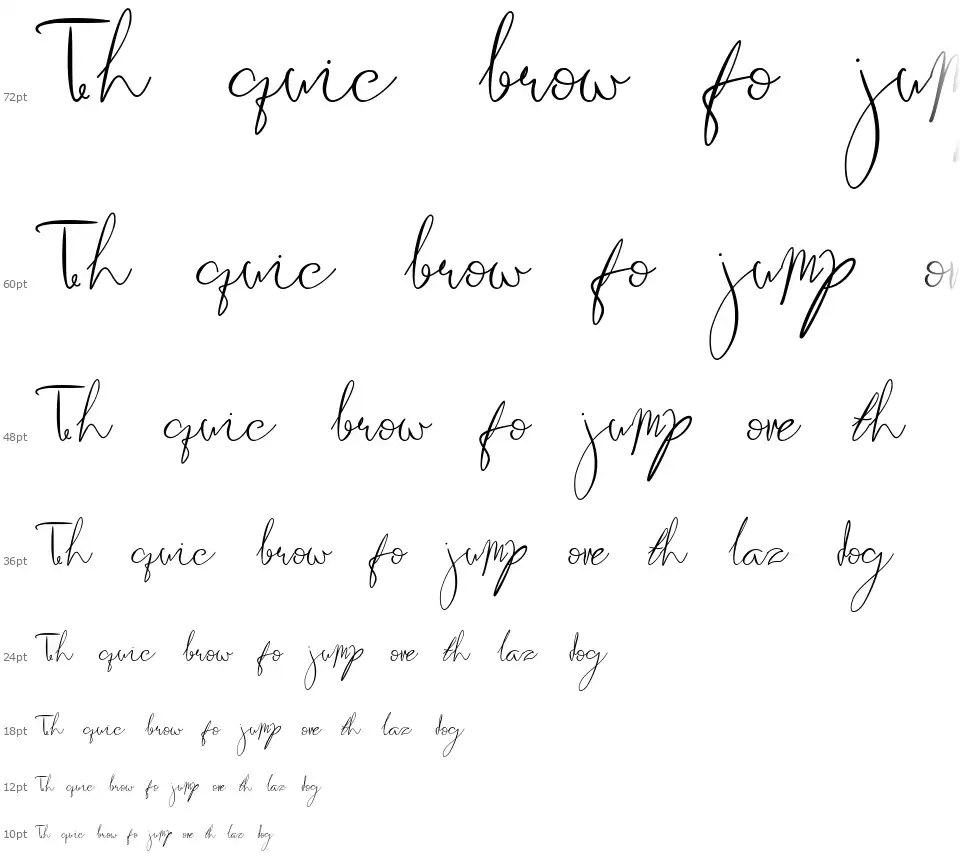 72pt Th quic brow fo jum
60pt Th quic brow fo jump ov
48pt Th quic brow fo jump ove th
36pt Th quic brow fo jump ove th laz dog
24pt Th quic brow fo jump ove th laz dog
18pt Th quic brow fo jump ove th laz dog
12pt Th quic brow fo jump ove th laz dog
10pt Th quic brow fo jump ove th laz dog